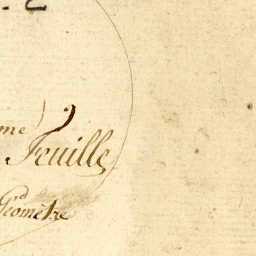 me)
Feuille
Géomètre